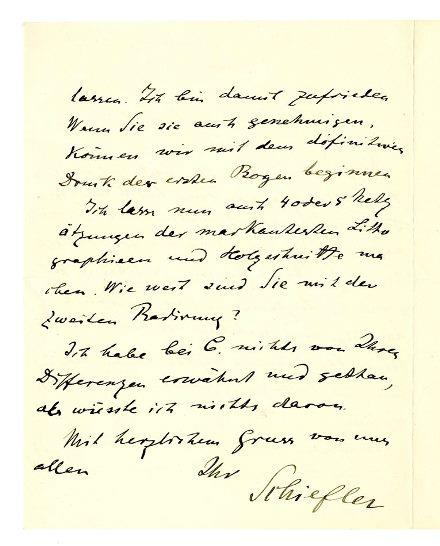 lassen. Ich bin damit zufrieden
Wenn Sie sie auch genehmigen,
können wir mit dem definitiven
Druck der ersten Bogen beginnen
Ich lasse nun auch 4 oder 5 Netz
ätzungen der markantesten Litho
graphieen und Holzschnitte ma
chen. Wie weit sind Sie mit der
zweiten Radirung?
Ich habe bei C. nichts von Ihren
Differenzen erwähnt und gethan,
als wüsste ich nichts davon.
Mit herzlichem Gruss von uns
allen Ihr
Schiefler